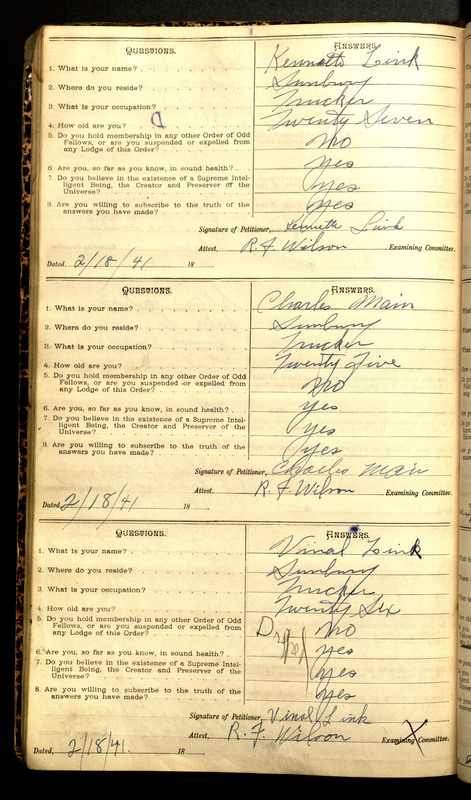 QUESTIONS. ANSWERS.
1. What is your name? Kenneth Link
2. Where do you reside? Sunbury
3. What is your occupation? Trucker
4. How old are you? Twenty Seven
5. Do you hold membership in any other Order of Odd
Fellows, or are you suspended or expelled from
any Lodge of this Order? No
6. Are you, so far as you know, in sound health? yes
7. Do you believe in the existence of a Supreme Intel-
ligent Being, the Creator and Preserver of the
Universe? yes
8. Are you willing to subscribe to the truth of the
answers you have made? yes
Signature of Petitioner, Kenneth Link
Attest, R. F. Wilson Examining Committee.
Dated 2/18/41 18
QUESTIONS. ANSWERS.
1. What is your name? Charles Main
2. Where do you reside? Sunbury
3. What is your occupation? Trucker
4. How old are you? Twenty Five
5. Do you hold membership in any other Order of Odd
Fellows, or are you suspended or expelled from
any Lodge of this Order? No
6. Are you, so far as you know, in sound health? yes
7. Do you believe in the existence of a Supreme Intel-
ligent Being, the Creator and Preserver of the
Universe? yes
8. Are you willing to subscribe to the truth of the
answers you have made? yes
Signature of Petitioner, Charles Main
Attest, R. F. Wilson Examining Committee.
Dated 2/18/41 18
QUESTIONS. ANSWERS.
1. What is your name? Vinal Link
2. Where do you reside? Sunbury
3. What is your occupation? Trucker
4. How old are you? Twenty Six
5. Do you hold membership in any other Order of Odd
Fellows, or are you suspended or expelled from
any Lodge of this Order? No
6. Are you, so far as you know, in sound health? yes
7. Do you believe in the existence of a Supreme Intel-
ligent Being, the Creator and Preserver of the
Universe? yes
8. Are you willing to subscribe to the truth of the
answers you have made? yes
Signature of Petitioner, Vinal Link
Attest, R. F. Wilson Examining Committee.
Dated, 2/18/41. 18